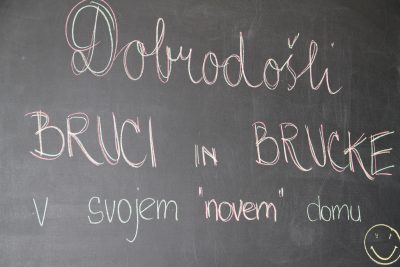 Dobrodošli
BRUCI IN BRUCKE
v svojem "novem" domu